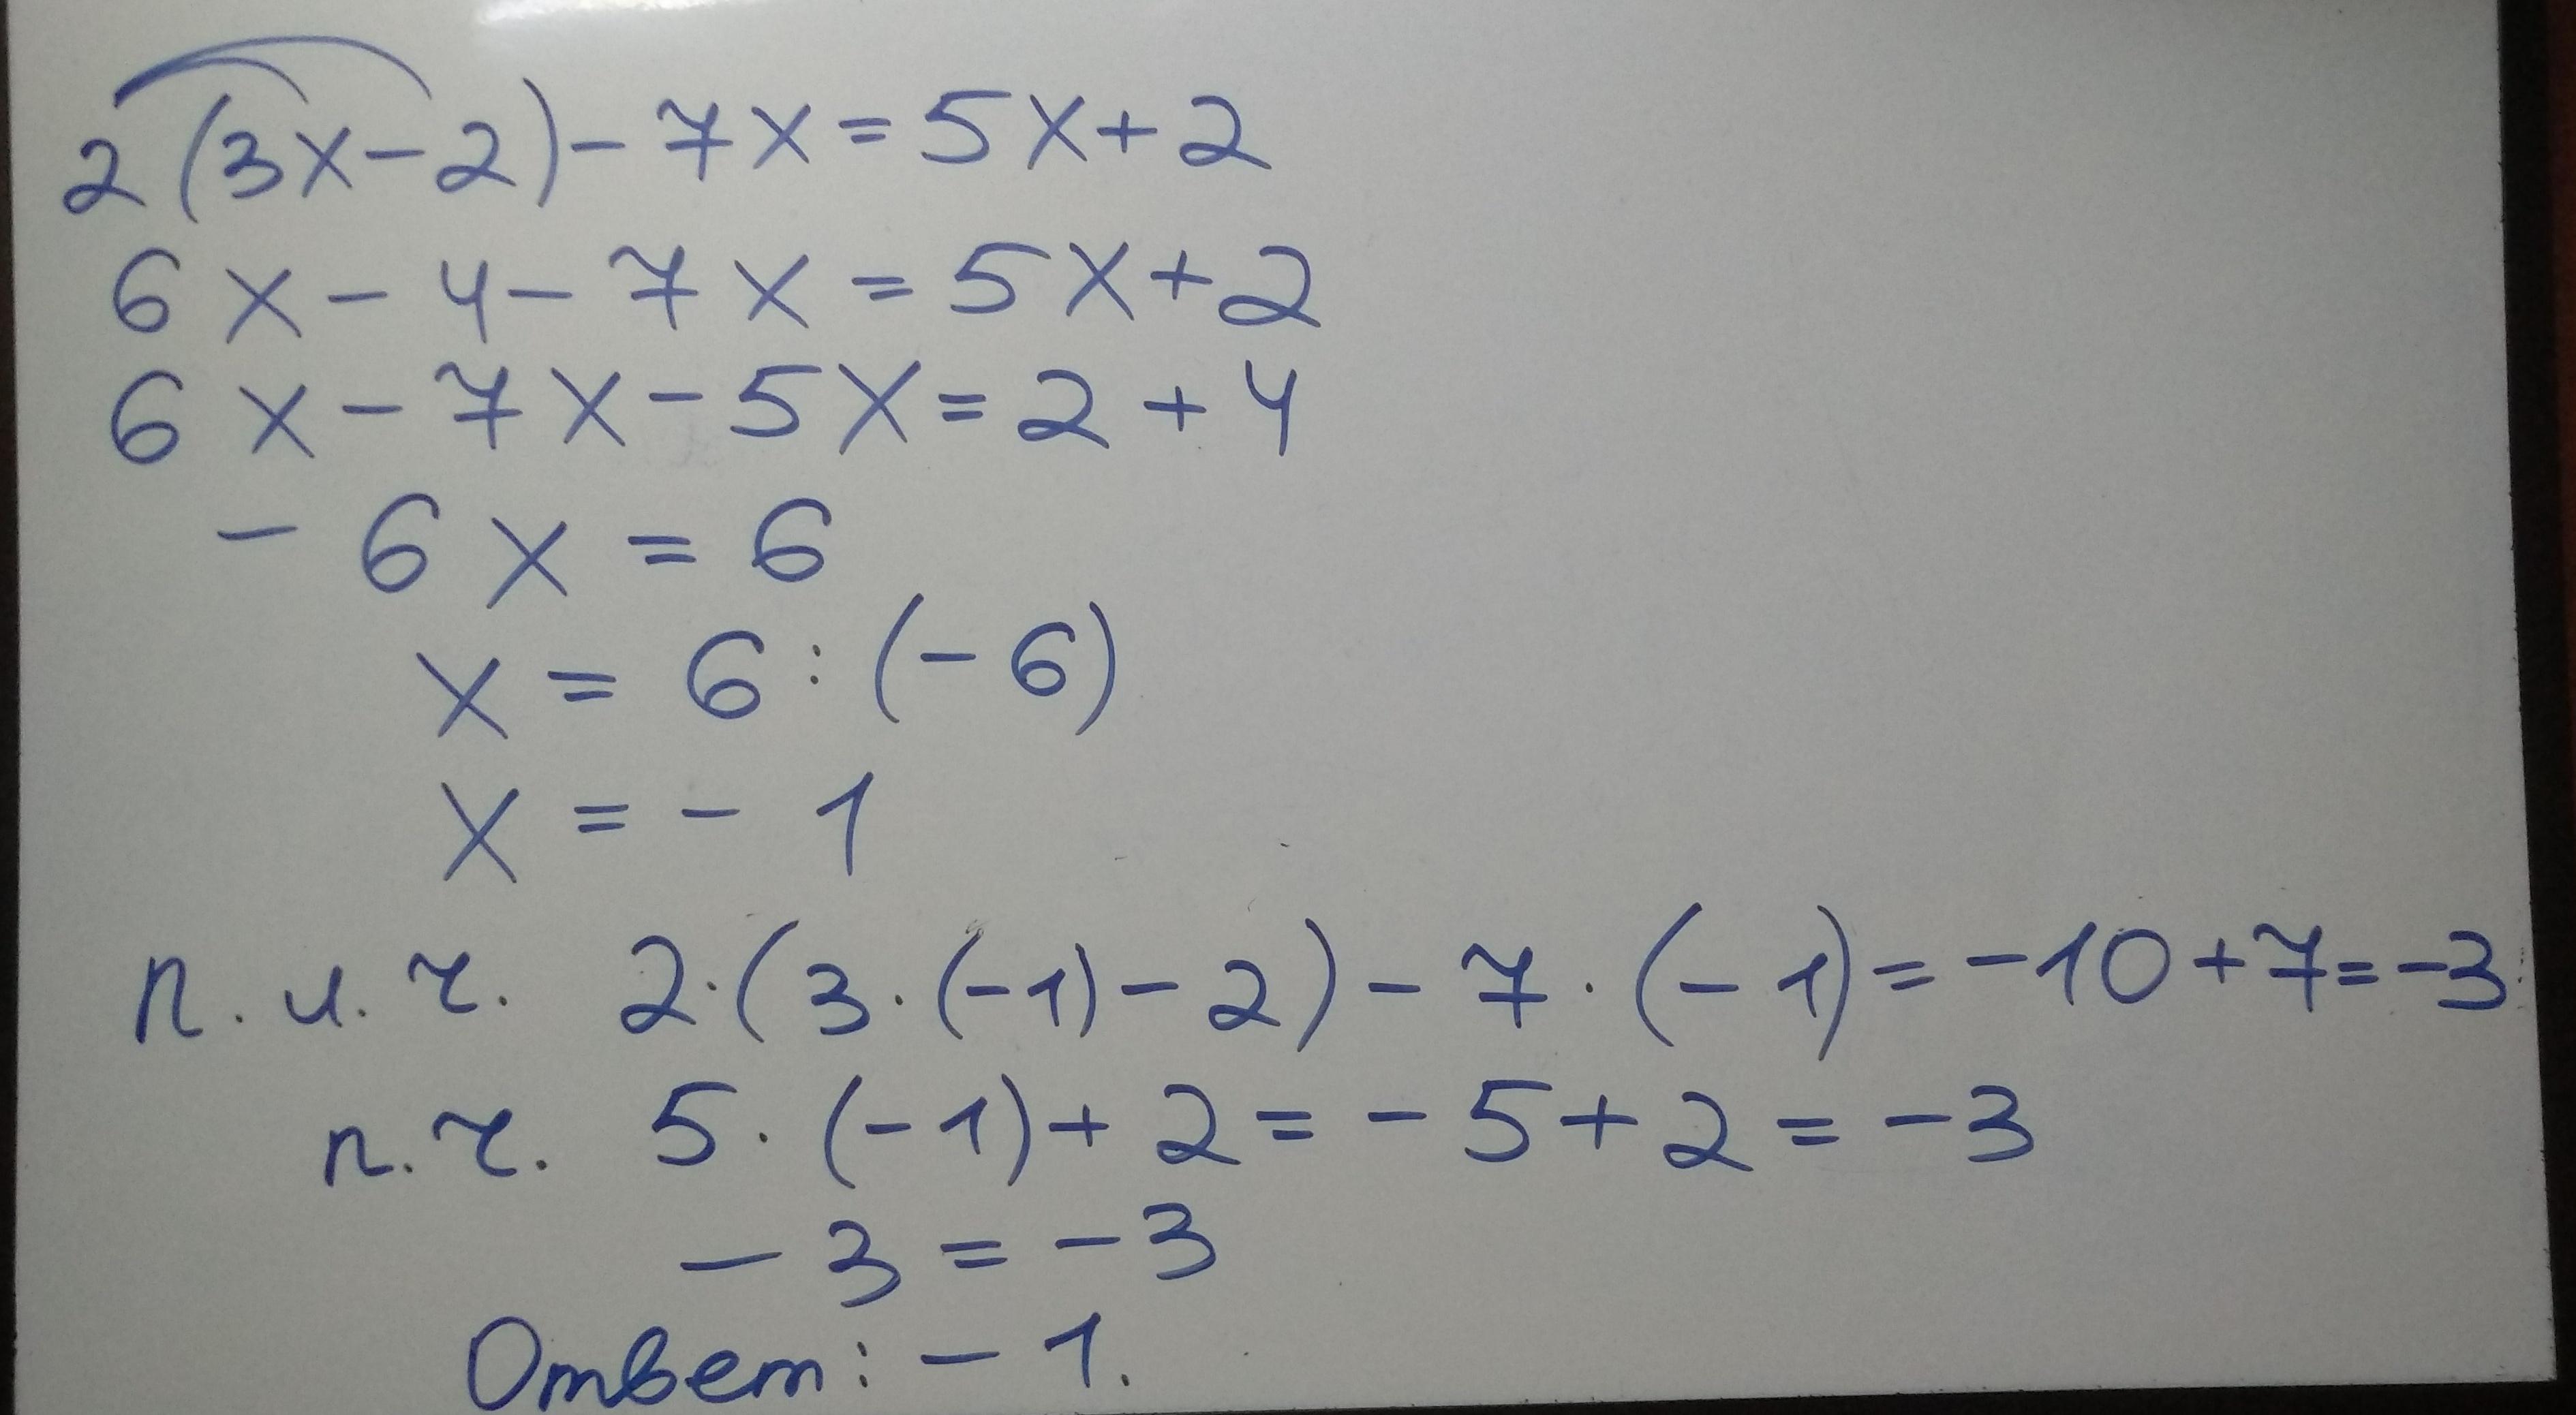 2(3x-2)-7x=5x+2
6x-4-7x=5x+2
6x-7x-5x=2+4
-6x=6
x=6:(-6)
x=-1
п.и.ч. 2·(3·(-1)-2)-7·(-1)=-10+7=-3
п.ч. 5·(-1)+2=-5+2=-3
-3=-3
Ответ: -1.